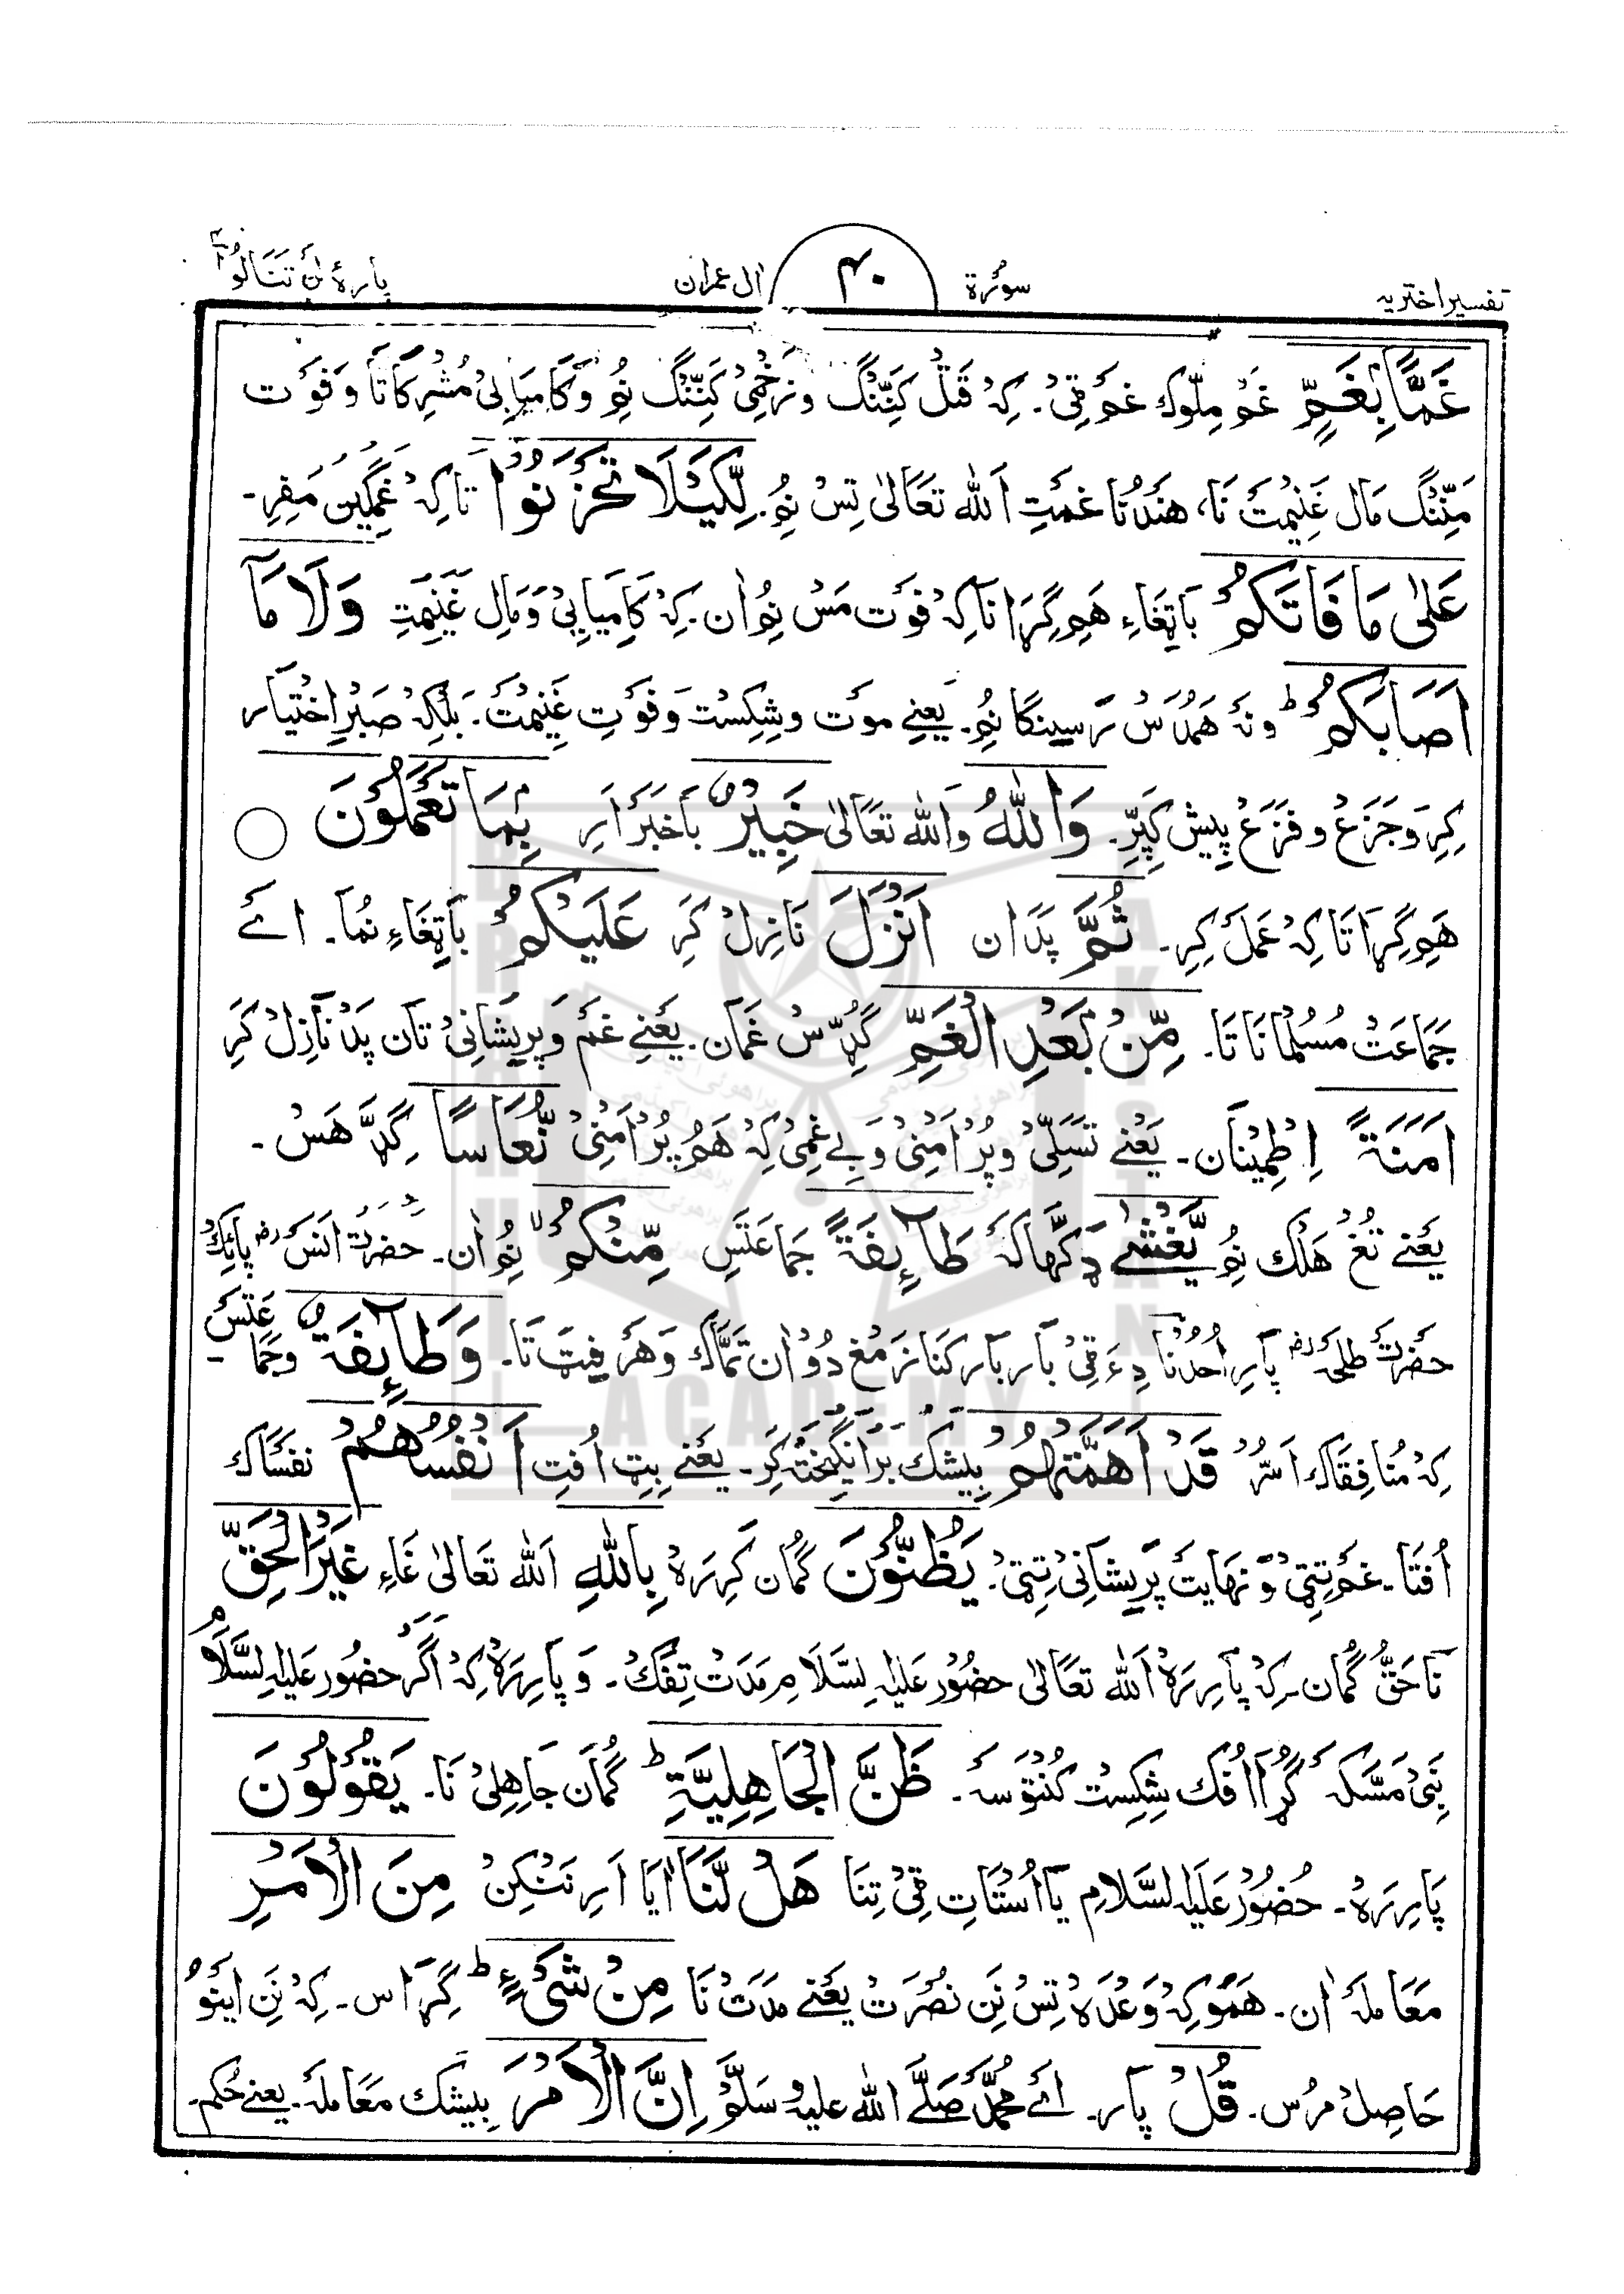 تفسیر اختریہ سُوْرَۃ ۴۰ اٰل عمران پارۂ لَنْ تَنَالُوا
غَمًّۢا بِغَمٍّ غَمْ مِلّوک غم ءَ ٹی۔ کِہ قَتْل کَنِّنْگ و زَخْمِیْ کَنِّنْگ نُمْ وَ کَامْیَابِیْ مُشْرِکَاتَا وَ فَوْت
مَنِّنْگ مَال غَنِیْمَتْ نَا، ھَنْدُنَا غَمَتِ اَللہ تَعَالیٰ تِسْ نُمْ۔ لِّکَیْلَا تَحْزَنُوْا تاکِہ غَمْگِیْن مَفِرِ۔
عَلٰی مَا فَاتَکُمْ بَاتِغَاءِ ھَمِ گِڑَانَا کِہ فَوْت مَسْ نُمْ اٰن۔ کِہ کَامِیَابِیْ وَ مَالِ غَنِیْمَتِ وَلَا مَآ
اَصَابَکُمْ ؕ وَنَہ ھَمْدُسْ رَسِیْنگَا نُمْ۔ یَعْنِے مَوْت و شِکِسْت وَ فَوْتِ غَنِیْمَتْ۔ بَلْکِہ صَبْرِ اِخْتِیَار
کِرِ وَ جَزَعْ و فَزَعْ پِیش کَپِرِّ۔ وَاللّٰہُ وَاللہ تَعَالیٰ خَبِیْرٌۢ بَاخَبَرْ اَرِ بِمَا تَعْمَلُوْنَ ○
ھَمِ گِڑَاتَا کِہ عَمَلْ کِرِ۔ ثُمَّ پَدَان اَنْزَلَ نَازِلْ کَرِ عَلَیْکُمْ بَاتِغَاءِ نُمَا۔ اَے
جَمَاعَتْ مُسُلْمَانَاتَا۔ مِّنْۢ بَعْدِ الْغَمِّ گُدّ سْ غَمَان۔ یَعْنِے غَمْ وَ پَرِیْشَانِیْ تَان پَدْ نَازِلْ کَرِ
اَمَنَۃً اِطْمِیْنَان۔ یَعْنِے تَسَلِّیْ و پُرْ اَمْنِیْ وَ بے غَمِیْ کِہ ھَمْ پُرْ اَمْنِیْ نُّعَاسًا ھَسْ۔
یَعْنِے تُغْ ھَلْک نُمْ یَّغْشٰے طَآئِفَۃً جَمَاعَتَسِ مِّنْکُمْ ۙ نُمْ اٰن۔ حَضْرَتْ اَنَسْ رض پَائِک
حَضْرَتْ طلحہ رض پَارِ اُحُدْنَا دِءَ ٹِیْ بَار بَار کَنَا زَمْغ دُوْ اٰن تَمَّاکَ وَ ھَرْفِیْتَ تَا۔ وَطَآئِفَۃٌ وَجَمَاعَتَسْ
کِہ مُنَافِقَاک اَسُّرْ قَدْ اَھَمَّتْہُمْ بِیْشَک بَرَانْگِیْخْتَہ کَرِ۔ یَعْنِے بِیتِ اُفْتِ اَنْفُسُھُمْ نَفَسَاک
اُفْتَا۔ غَمْ تِیٹِیْ وَ نِھَایَتْ پَرِیْشَانِیْ تِیٹِیْ۔ یَظُنُّوْنَ گُمَان کَرِرَہْ بِاللّٰہِ اَللہ تَعَالیٰ غَاءِ غَیْرَ الْحَقِّ
نَاحَقُّ گُمَان۔ کِہ پَارِرَہْ اَللہ تَعَالیٰ حُضُوْر عَلَیْہِ السَّلَام مَدَتْ تِفَکْ۔ وَ پَارِرَہْ کِہ اَگَرْ حُضُور عَلَیْہِ السَّلَامُ
نَبِیْ مَسَّکَہ گُڑَا اُفْک شِکِسْت کُنْتَوْسَہ۔ ظَنَّ الْجَاھِلِیَّۃِ ؕ گُمَان جَاھِلِیْ نَا۔ یَقُوْلُوْنَ
پَارِرَہْ۔ حُضُوْرْ عَلَیْہِ السَّلَامِ یَا اُسْتَاتِ ٹِیْ تِنَا ھَلْ لَّنَا اٰیَا اَرِ نَنْکِنْ مِنَ الْاَمْرِ
مَعَامَلَہ اٰن۔ ھَمُو کِہ وَعْدَہْ تِسْ نَنِ نُصْرَتْ یَعْنِے مَدَتْ نَا مِنْ شَیْءٍ ؕ گِڑَاس۔ کِہ نَنِ اِیْنَوْ
حَاصِلْ مَرُسْ۔ قُلْ پَار۔ اَے مُحَمَّدْ صَلَّے اللہ عَلَیْہِ وَسَلَّمْ اِنَّ الْاَمْرَ بِیْشَک مَعَامَلَہ۔ یعنے حُکم۔
BRAHUI ACADEMY PAKISTAN